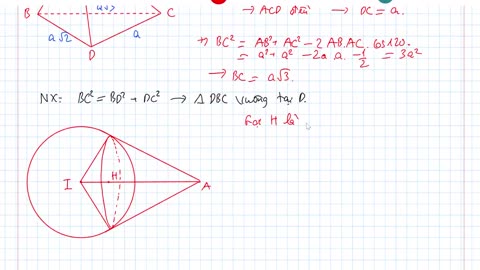 → ACD đều → DC = a.
B C
a√2 a
D
+) BC² = AB² + AC² - 2AB.AC. cos120.
= a² + a² - 2a a. -1/2 = 3a²
→ BC = a√3.
NX: BC² = BD² + DC² → △ DBC vuông tại D.
Gọi H là
I H A